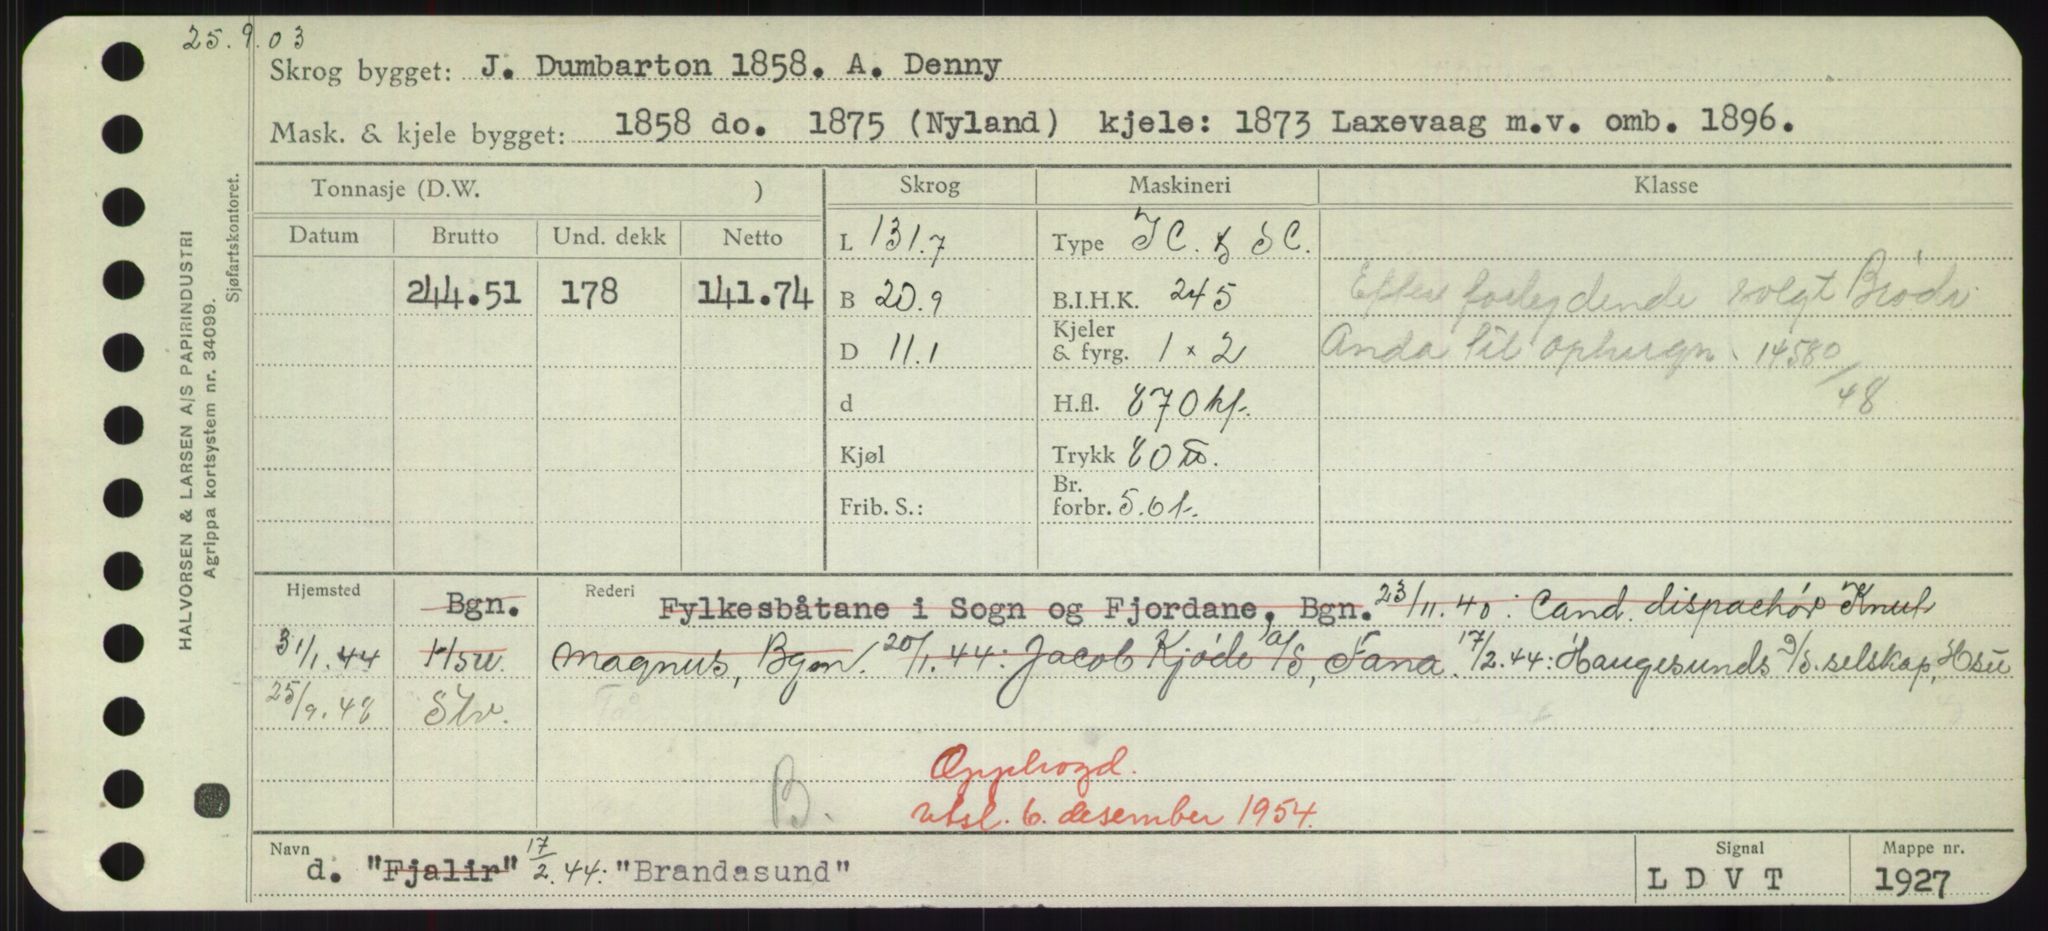 25.9.03
Skrog bygget: J. Dumbarton 1858. A. Denny
Mask. & kjele bygget: 1858 do. 1875 (Nyland) kjele: 1873 Laxevaag m.v. omb. 1896.
HALVORSEN & LARSEN A/S PAPIRINDUSTRI
Agrippa kortsystem nr. 34099.
Sjøfartskontoret.
Tonnasje (D.W. ) Skrog Maskineri Klasse
Datum Brutto Und. dekk Netto L 131.7 Type
244.51 178 141.74 B 20.9 B.I.H.K. 245 Efter forlydende solgt Brødr.
D 11.1 Kjeler & fyrg. 1 x 2 Anda til ophugn. 14580/48
d H.fl. 870 kf.
Kjøl Trykk 80
Frib. S.: Br. forbr. 5.0 t.
Hjemsted Bgn. Rederi Fylkesbåtane i Sogn og Fjordane, Bgn. 23/11.40: Cand. dispachør Knut
31/1.44 Hsu. Magnus, Bgn. 20/1.44: Jacob Kjøde A/S, Fana. 17/2.44: Haugesunds D/S.selskap, Hsu
25/9.48 Stv.
B.
Opphogd.
utsl. 6. desember 1954.
Navn d. "Fjalir" 17/2.44: "Brandasund" Signal L D V T Mappe nr. 1927